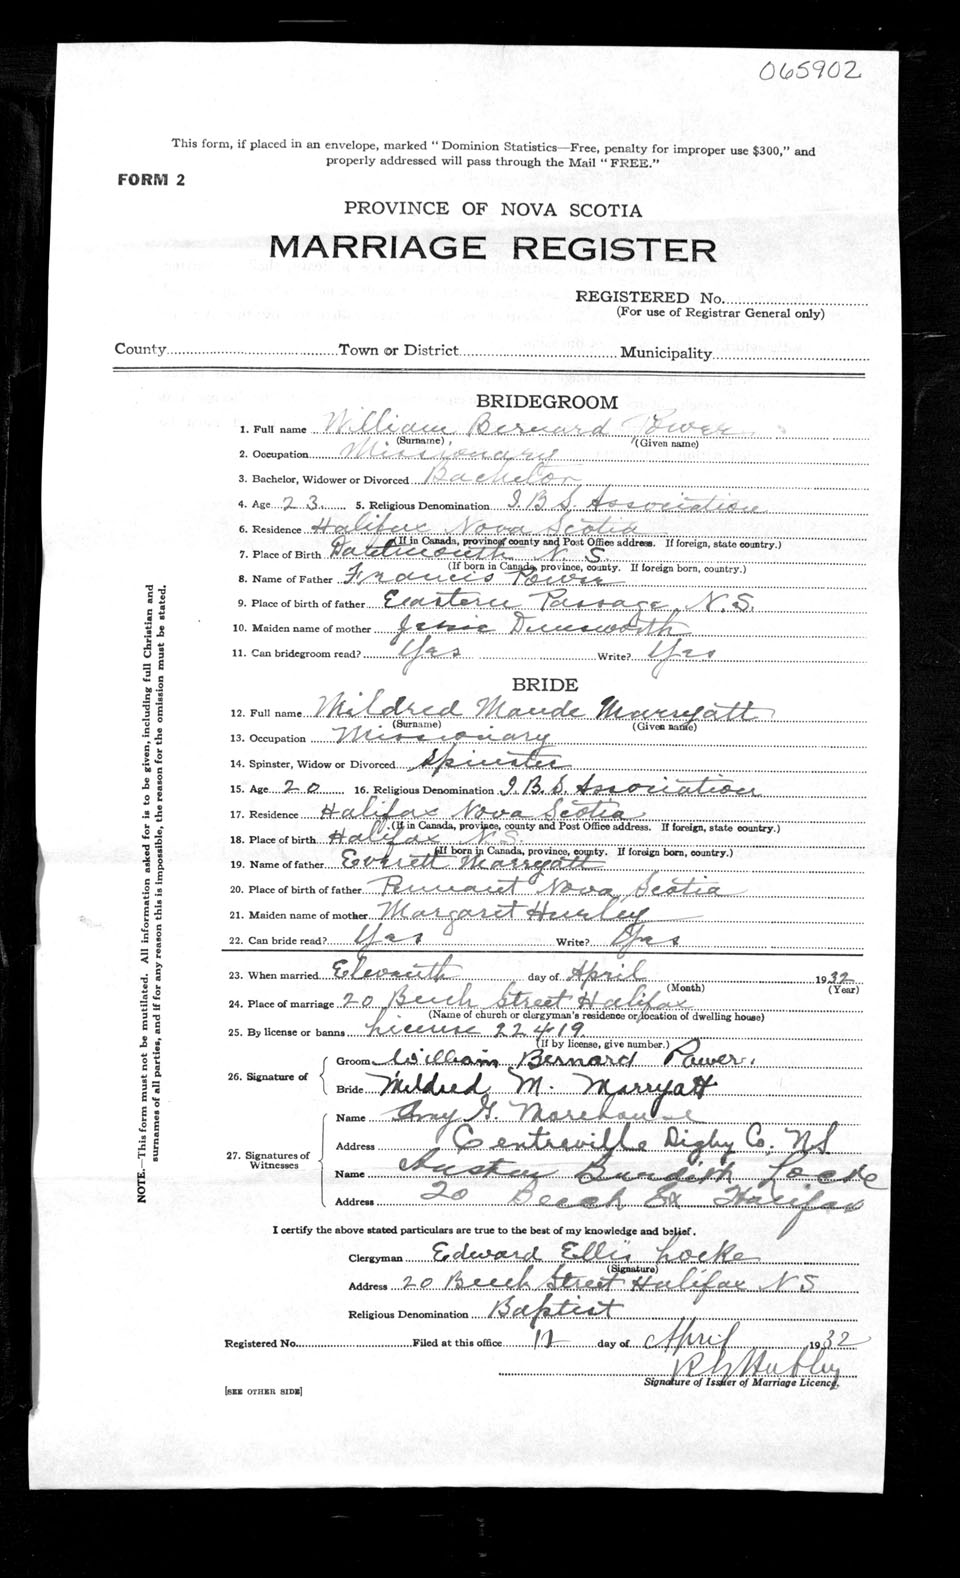 065902
This form, if placed in an envelope, marked " Dominion Statistics—Free, penalty for improper use $300," and
properly addressed will pass through the Mail " FREE."
FORM 2
PROVINCE OF NOVA SCOTIA
MARRIAGE REGISTER
REGISTERED No.
(For use of Registrar General only)
County Town or District Municipality
BRIDEGROOM
1. Full name William Bernard Power
(Surname) (Given name)
2. Occupation Missionary
3. Bachelor, Widower or Divorced Bachelor
4. Age 23 5. Religious Denomination I.B.S. Association
6. Residence Halifax Nova Scotia
(If in Canada, province, county and Post Office address. If foreign, state country.)
7. Place of Birth Dartmouth N. S
(If born in Canada, province, county. If foreign born, country.)
8. Name of Father Francis Power
9. Place of birth of father Eastern Passage, N.S.
10. Maiden name of mother Jessie Dunsworth
11. Can bridegroom read? Yes Write? Yes
BRIDE
12. Full name Mildred Maude Marryatt
(Surname) (Given name)
13. Occupation Missionary
14. Spinster, Widow or Divorced Spinster
15. Age 20 16. Religious Denomination I.B.S. Association
17. Residence Halifax Nova Scotia
(If in Canada, province, county and Post Office address. If foreign, state country.)
18. Place of birth Halifax N.S.
(If born in Canada, province, county. If foreign born, country.)
19. Name of father Everett Marryatt
20. Place of birth of father Pennant Nova Scotia
21. Maiden name of mother Margaret Hurley
22. Can bride read? Yes Write? Yes
23. When married Eleventh day of April 1932
(Month) (Year)
24. Place of marriage 20 Beech Street Halifax
(Name of church or clergyman's residence or location of dwelling house)
25. By license or banns License 22419
(If by license, give number.)
26. Signature of Groom William Bernard Power.
Bride Mildred M. Marryatt
27. Signatures of Witnesses
Name Amy G. Morehouse
Address Centreville Digby Co. NS
Name Locke
Address 20 Beech St Halifax
I certify the above stated particulars are true to the best of my knowledge and belief.
Clergyman Edward Ellis Locke
(Signature)
Address 20 Beech Street Halifax N S
Religious Denomination Baptist
Registered No. Filed at this office day of April 1932
Hubley
Signature of Issuer of Marriage Licence.
[SEE OTHER SIDE]
NOTE.—This form must not be mutilated. All information asked for is to be given, including full Christian and
surnames of all parties, and if for any reason this is impossible, the reason for the omission must be stated.